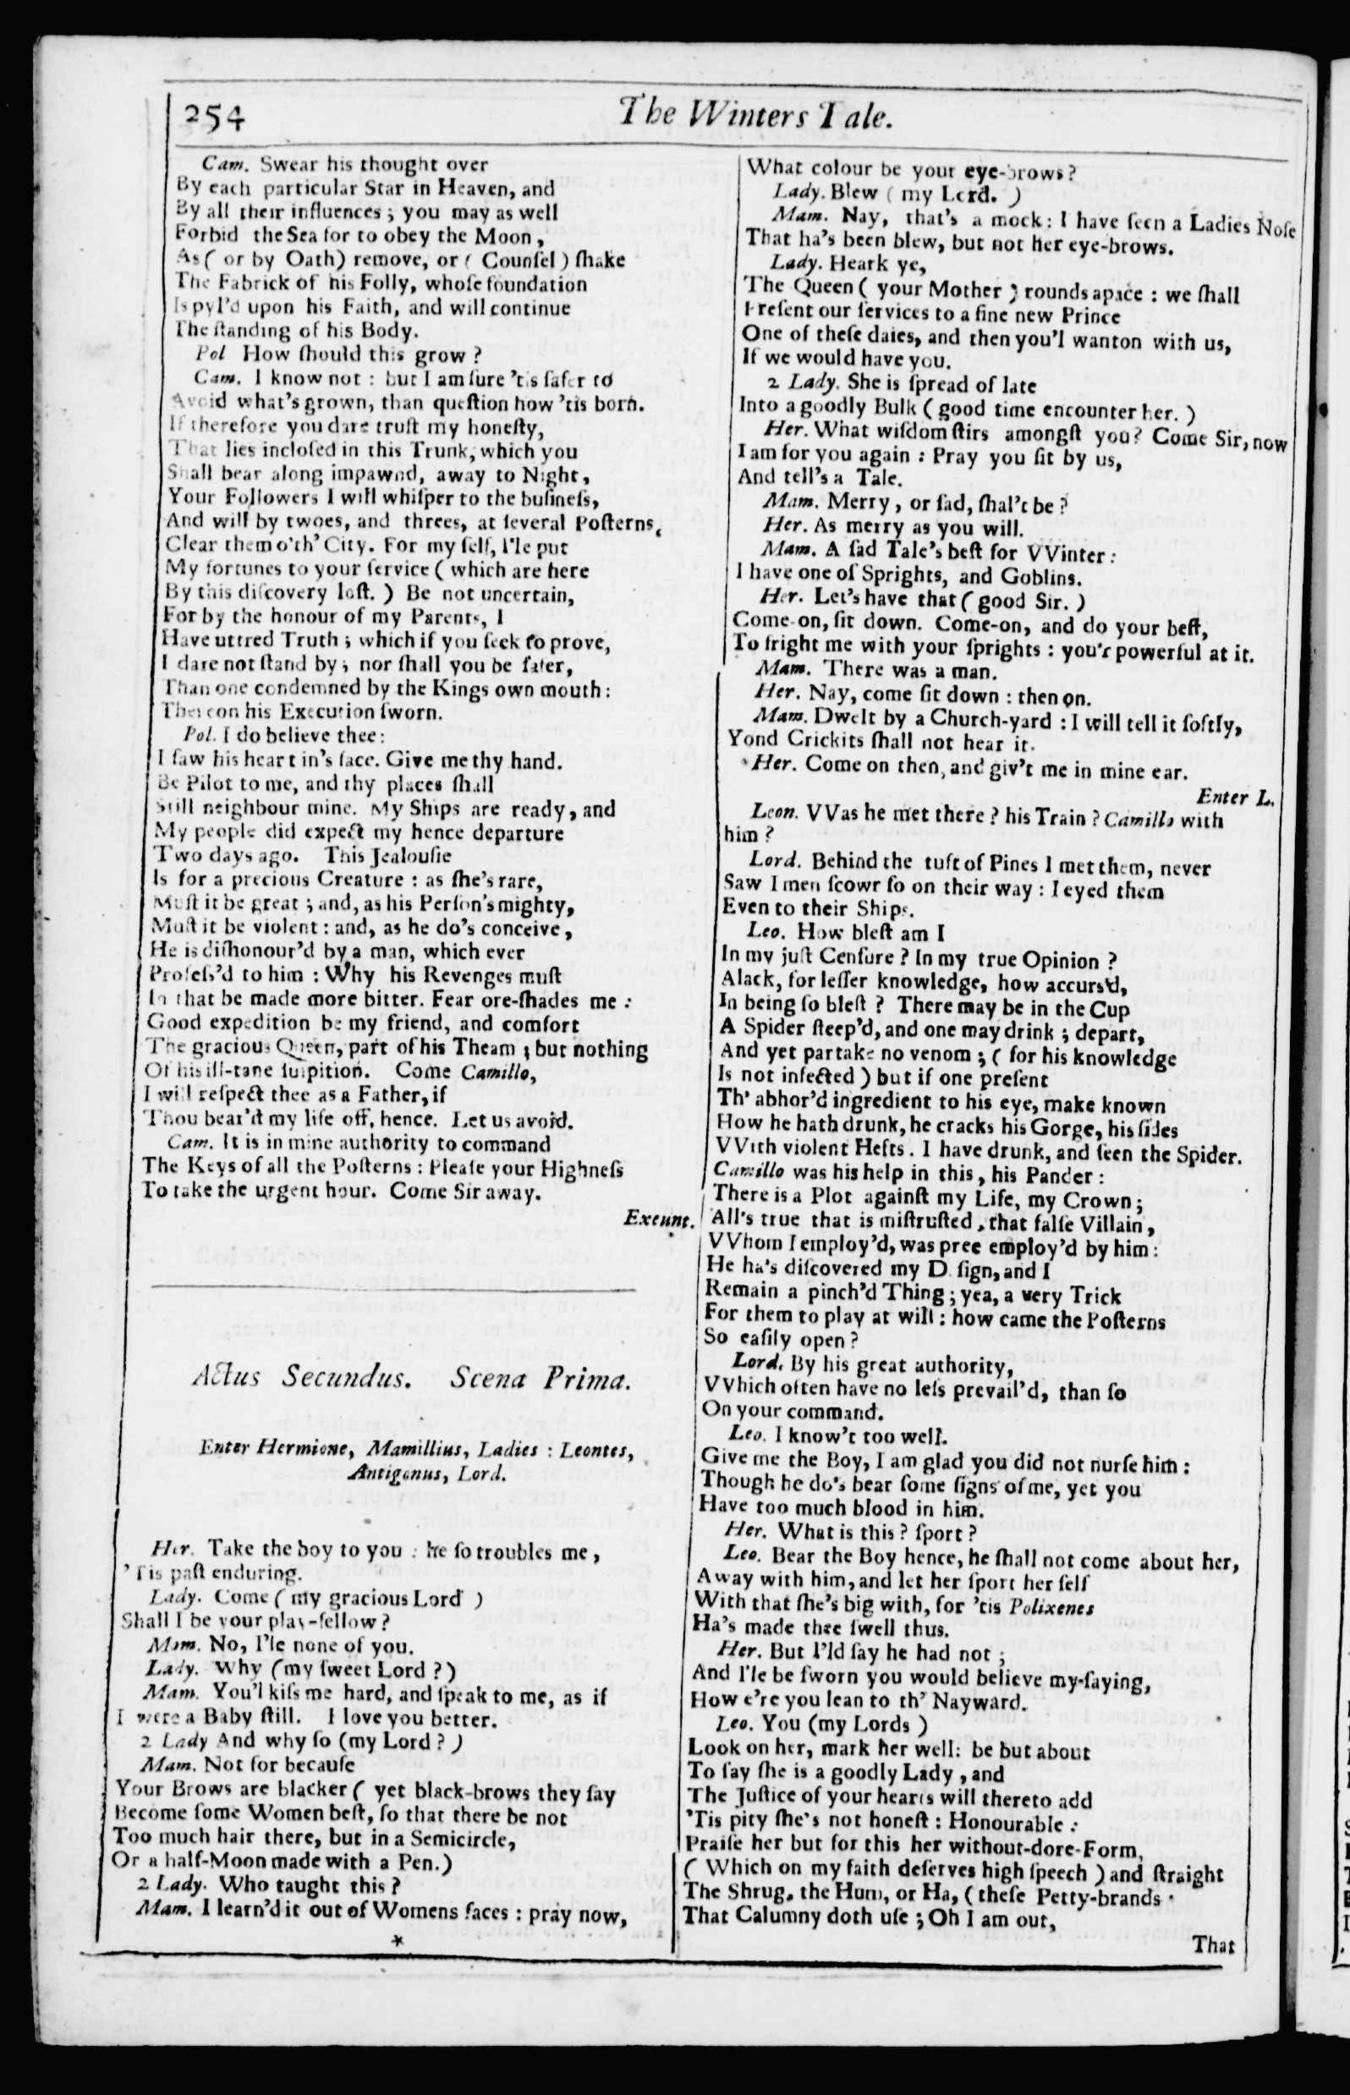 254
The Winters Tale.
Cam. Swear his thought over
By each particular Star in Heaven, and
By all their influences ; you may as well
Forbid the Sea for to obey the Moon ,
As ( or by Oath) remove, or ( Counſel ) ſhake
The Fabrick of his Folly, whoſe foundation
Is pyl'd upon his Faith, and will continue
The ſtanding of his Body.
Pol How ſhould this grow ?
Cam. I know not : but I am ſure 'tis ſafer to
Avoid what's grown, than queſtion how 'tis born.
If therefore you dare truſt my honeſty,
That lies incloſed in this Trunk, which you
Shall bear along impawnd, away to Night,
Your Followers I will whiſper to the buſineſs,
And will by twoes, and threes, at ſeveral Poſterns,
Clear them o'th' City. For my ſelf, I'le put
My fortunes to your ſervice ( which are here
By this diſcovery loſt. ) Be not uncertain,
For by the honour of my Parents, I
Have uttred Truth ; which if you ſeek to prove,
I dare not ſtand by ; nor ſhall you be ſafer,
Than one condemned by the Kings own mouth :
Thereon his Execution ſworn.
Pol. I do believe thee :
I ſaw his heart in's face. Give me thy hand.
Be Pilot to me, and thy places ſhall
Still neighbour mine. My Ships are ready, and
My people did expect my hence departure
Two days ago. This Jealouſie
Is for a precious Creature : as ſhe's rare,
Muſt it be great ; and, as his Perſon's mighty,
Muſt it be violent : and, as he do's conceive,
He is diſhonour'd by a man, which ever
Profeſs'd to him : Why his Revenges muſt
In that be made more bitter. Fear ore-ſhades me :
Good expedition be my friend, and comfort
The gracious Queen, part of his Theam ; but nothing
Of his ill-tane ſuſpition. Come Camillo,
I will reſpect thee as a Father, if
Thou bear'ſt my life off, hence. Let us avoid.
Cam. It is in mine authority to command
The Keys of all the Poſterns : Pleaſe your Highneſs
To take the urgent hour. Come Sir away.
Exeunt.
Actus Secundus. Scena Prima.
Enter Hermione, Mamillius, Ladies : Leontes,
Antigonus, Lord.
Her. Take the boy to you : he ſo troubles me,
'Tis paſt enduring.
Lady. Come ( my gracious Lord )
Shall I be your play-fellow ?
Mam. No, I'le none of you.
Lady. Why (my ſweet Lord ?)
Mam. You'l kiſs me hard, and ſpeak to me, as if
I were a Baby ſtill. I love you better.
2 Lady And why ſo (my Lord ? )
Mam. Not for becauſe
Your Brows are blacker ( yet black-brows they ſay
Become ſome Women beſt, ſo that there be not
Too much hair there, but in a Semicircle,
Or a half-Moon made with a Pen.)
2 Lady. Who taught this ?
Mam. I learn'd it out of Womens faces : pray now,
*
What colour be your eye-brows ?
Lady. Blew ( my Lord. )
Mam. Nay, that's a mock : I have ſeen a Ladies Noſe
That ha's been blew, but not her eye-brows.
Lady. Heark ye,
The Queen ( your Mother ) rounds apace : we ſhall
Preſent our ſervices to a fine new Prince
One of theſe daies, and then you'l wanton with us,
If we would have you.
2 Lady. She is ſpread of late
Into a goodly Bulk ( good time encounter her. )
Her. What wiſdom ſtirs amongſt you? Come Sir, now
I am for you again : Pray you ſit by us,
And tell's a Tale.
Mam. Merry , or ſad, ſhal't be ?
Her. As merry as you will.
Mam. A ſad Tale's beſt for VVinter :
I have one of Sprights, and Goblins.
Her. Let's have that ( good Sir. )
Come-on, ſit down. Come-on, and do your beſt,
To fright me with your ſprights : you'r powerful at it.
Mam. There was a man.
Her. Nay, come ſit down : then on.
Mam. Dwelt by a Church-yard : I will tell it ſoftly,
Yond Crickits ſhall not hear it.
Her. Come on then, and giv't me in mine ear.
Enter L.
Leon. VVas he met there ? his Train ? Camillo with
him ?
Lord. Behind the tuft of Pines I met them, never
Saw I men ſcowr ſo on their way : I eyed them
Even to their Ships.
Leo. How bleſt am I
In my juſt Cenſure ? In my true Opinion ?
Alack, for leſſer knowledge, how accurs'd,
In being ſo bleſt ? There may be in the Cup
A Spider ſteep'd, and one may drink ; depart,
And yet partake no venom ; ( for his knowledge
Is not infected ) but if one preſent
Th' abhor'd ingredient to his eye, make known
How he hath drunk, he cracks his Gorge, his ſides
VVith violent Hefts. I have drunk, and ſeen the Spider.
Camillo was his help in this , his Pander :
There is a Plot againſt my Life, my Crown ;
All's true that is miſtruſted , that falſe Villain ,
VVhom I employ'd, was pree employ'd by him :
He ha's diſcovered my D ſign, and I
Remain a pinch'd Thing ; yea, a very Trick
For them to play at will : how came the Poſterns
So eaſily open ?
Lord. By his great authority,
VVhich often have no leſs prevail'd, than ſo
On your command.
Leo. I know't too well.
Give me the Boy, I am glad you did not nurſe him :
Though he do's bear ſome ſigns of me, yet you
Have too much blood in him.
Her. What is this ? ſport ?
Leo. Bear the Boy hence, he ſhall not come about her,
Away with him, and let her ſport her ſelf
With that ſhe's big with, for 'tis Polixenes
Ha's made thee ſwell thus.
Her. But I'ld ſay he had not ;
And I'le be ſworn you would believe my-ſaying,
How e're you lean to th' Nayward.
Leo. You (my Lords )
Look on her, mark her well : be but about
To ſay ſhe is a goodly Lady , and
The Juſtice of your hearts will thereto add
'Tis pity ſhe's not honeſt : Honourable :
Praiſe her but for this her without-dore-Form,
( Which on my faith deſerves high ſpeech ) and ſtraight
The Shrug, the Hum, or Ha, ( theſe Petty-brands
That Calumny doth uſe ; Oh I am out,
That